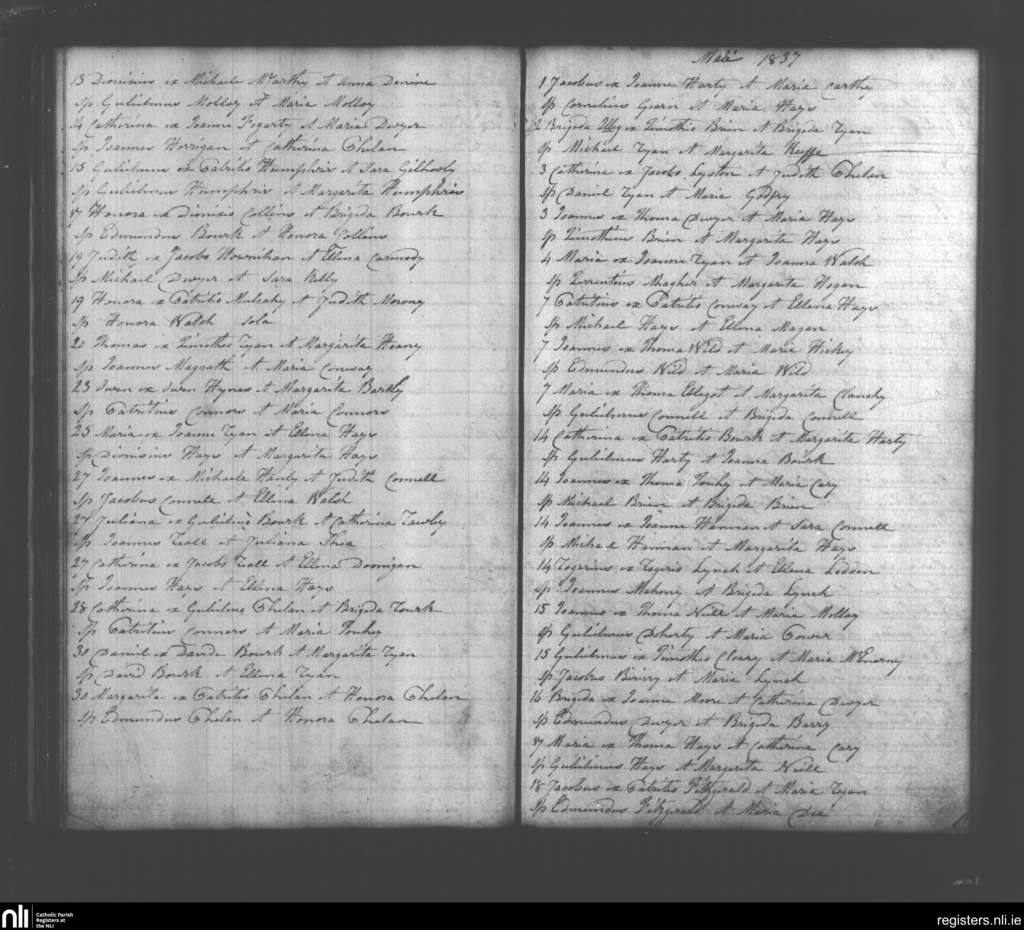 13 Dionisius ex Michaele McCarthy et Anna Devine
Sp Gulielmus Molloy et Maria Molloy
14 Catherina ex Joanne Fogarty et Maria Dwyer
Sp Joannes Horrigan et Catherina Phelan
15 Gulielmus ex Patritio Humphris et Sara Gilhooly
Sp Gulielmus Humphris et Margarita Humphries
17 Honora ex Dionisio Collins et Brigida Bourk
Sp Edmundus Bourk et Honora Collins
19 Judith ex Jacobo Hourihan et Ellena Carmody
Sp Michael Dwyer et Sara
19 Honora ex Patritio Mulcahy et Judith Morony
Sp Honora Walsh sola
20 Thomas ex Timotheo Ryan et Margarita Heany
Sp Joannes Magrath et Maria Conway
23 Owen ex Owen Hynes et Margarita Barkly
Sp Patritius Connors et Maria Connors
25 Maria ex Joanne Ryan et Ellena Hays
Sp Dionisius Hays et Margarita Hays
27 Joannes ex Michaele Hanly et Judith Connell
Sp Jacobus Connell et Ellena Walsh
27 Juliana ex Gulielmo Bourk et Catherina
Sp Joannes Wall et Juliana Shea
27 Catherina ex Jacobo Wall et Ellena Doonigan
Sp Joannes Hays et Ellena Hays
28 Catherina ex Gulielmo Phelan et Brigida Rourk
Sp Patritius Connors et Maria Touhy
30 Daniel ex Davide Bourk et Margarita Ryan
Sp David Bourk et Ellena Ryan
30 Margarita ex Patritio Phelan et Honora Phelan
Sp Edmundus Phelan et Honora Phelan
Maii 1837
1 Jacobus ex Joanne Harty et Maria Carthy
Sp Cornelius Guerin et Maria Hays
2 Brigida ex Timothio Brien et Brigida Ryan
Sp Michael Ryan et Margarita Keeffe
3 Catherine ex Jacobo Lyston et Judith Phelan
Sp Daniel Ryan et Maria Godfry
3 Joannes ex Thoma Dwyer et Maria Hays
Sp Timothius Brien et Margarita Hays
4 Maria ex Joanne Ryan et Joanna Walsh
Sp Terrentius Meagher et Margarita Hogan
7 Patritius ex Patritio Conway et Ellena Hays
Sp Michael Hays et Ellena Magan
7 Joannes ex Thoma Wild et Maria Hickey
Sp Edmundus Wild et Maria Wild
7 Maria ex Thoma Elligot et Margarita Clanchy
Sp Gulielmus Connell et Brigida Connell
14 Catherina ex Patritio Bourk et Margarita Harty
Sp Gulielmus Harty et Joanna Bourk
14 Joannes ex Thoma Touhy et Maria Cary
Sp Michael Brien et Brigida Brien
14 Joannes ex Joanne Hannan et Sara Connell
Sp Michael Hannan et Margarita Hays
14 Rogerius ex Rogerio Lynch et Ellena Leddin
Sp Joannes Mahony et Brigida Lynch
15 Joannes ex Thoma Neill et Maria Molloy
Sp Gulielmus Doherty et Maria Power
15 Gulielmus ex Timothio Cleary et Maria McEnerny
Sp Jacobus et Maria Lynch
16 Brigida ex Joanne Moore et Catherina Dwyer
Sp Edmundus Dwyer et Brigida Barry
17 Maria ex Thoma Hays et Catherina Cary
Sp Gulielmus Hays et Margarita Neill
18 Jacobus ex Patritio Fitzgerald et Maria Ryan
Sp Edmundus Fitzgerald et Maria Dee
nli
Catholic Parish
Registers at
the NLI
registers.nli.ie